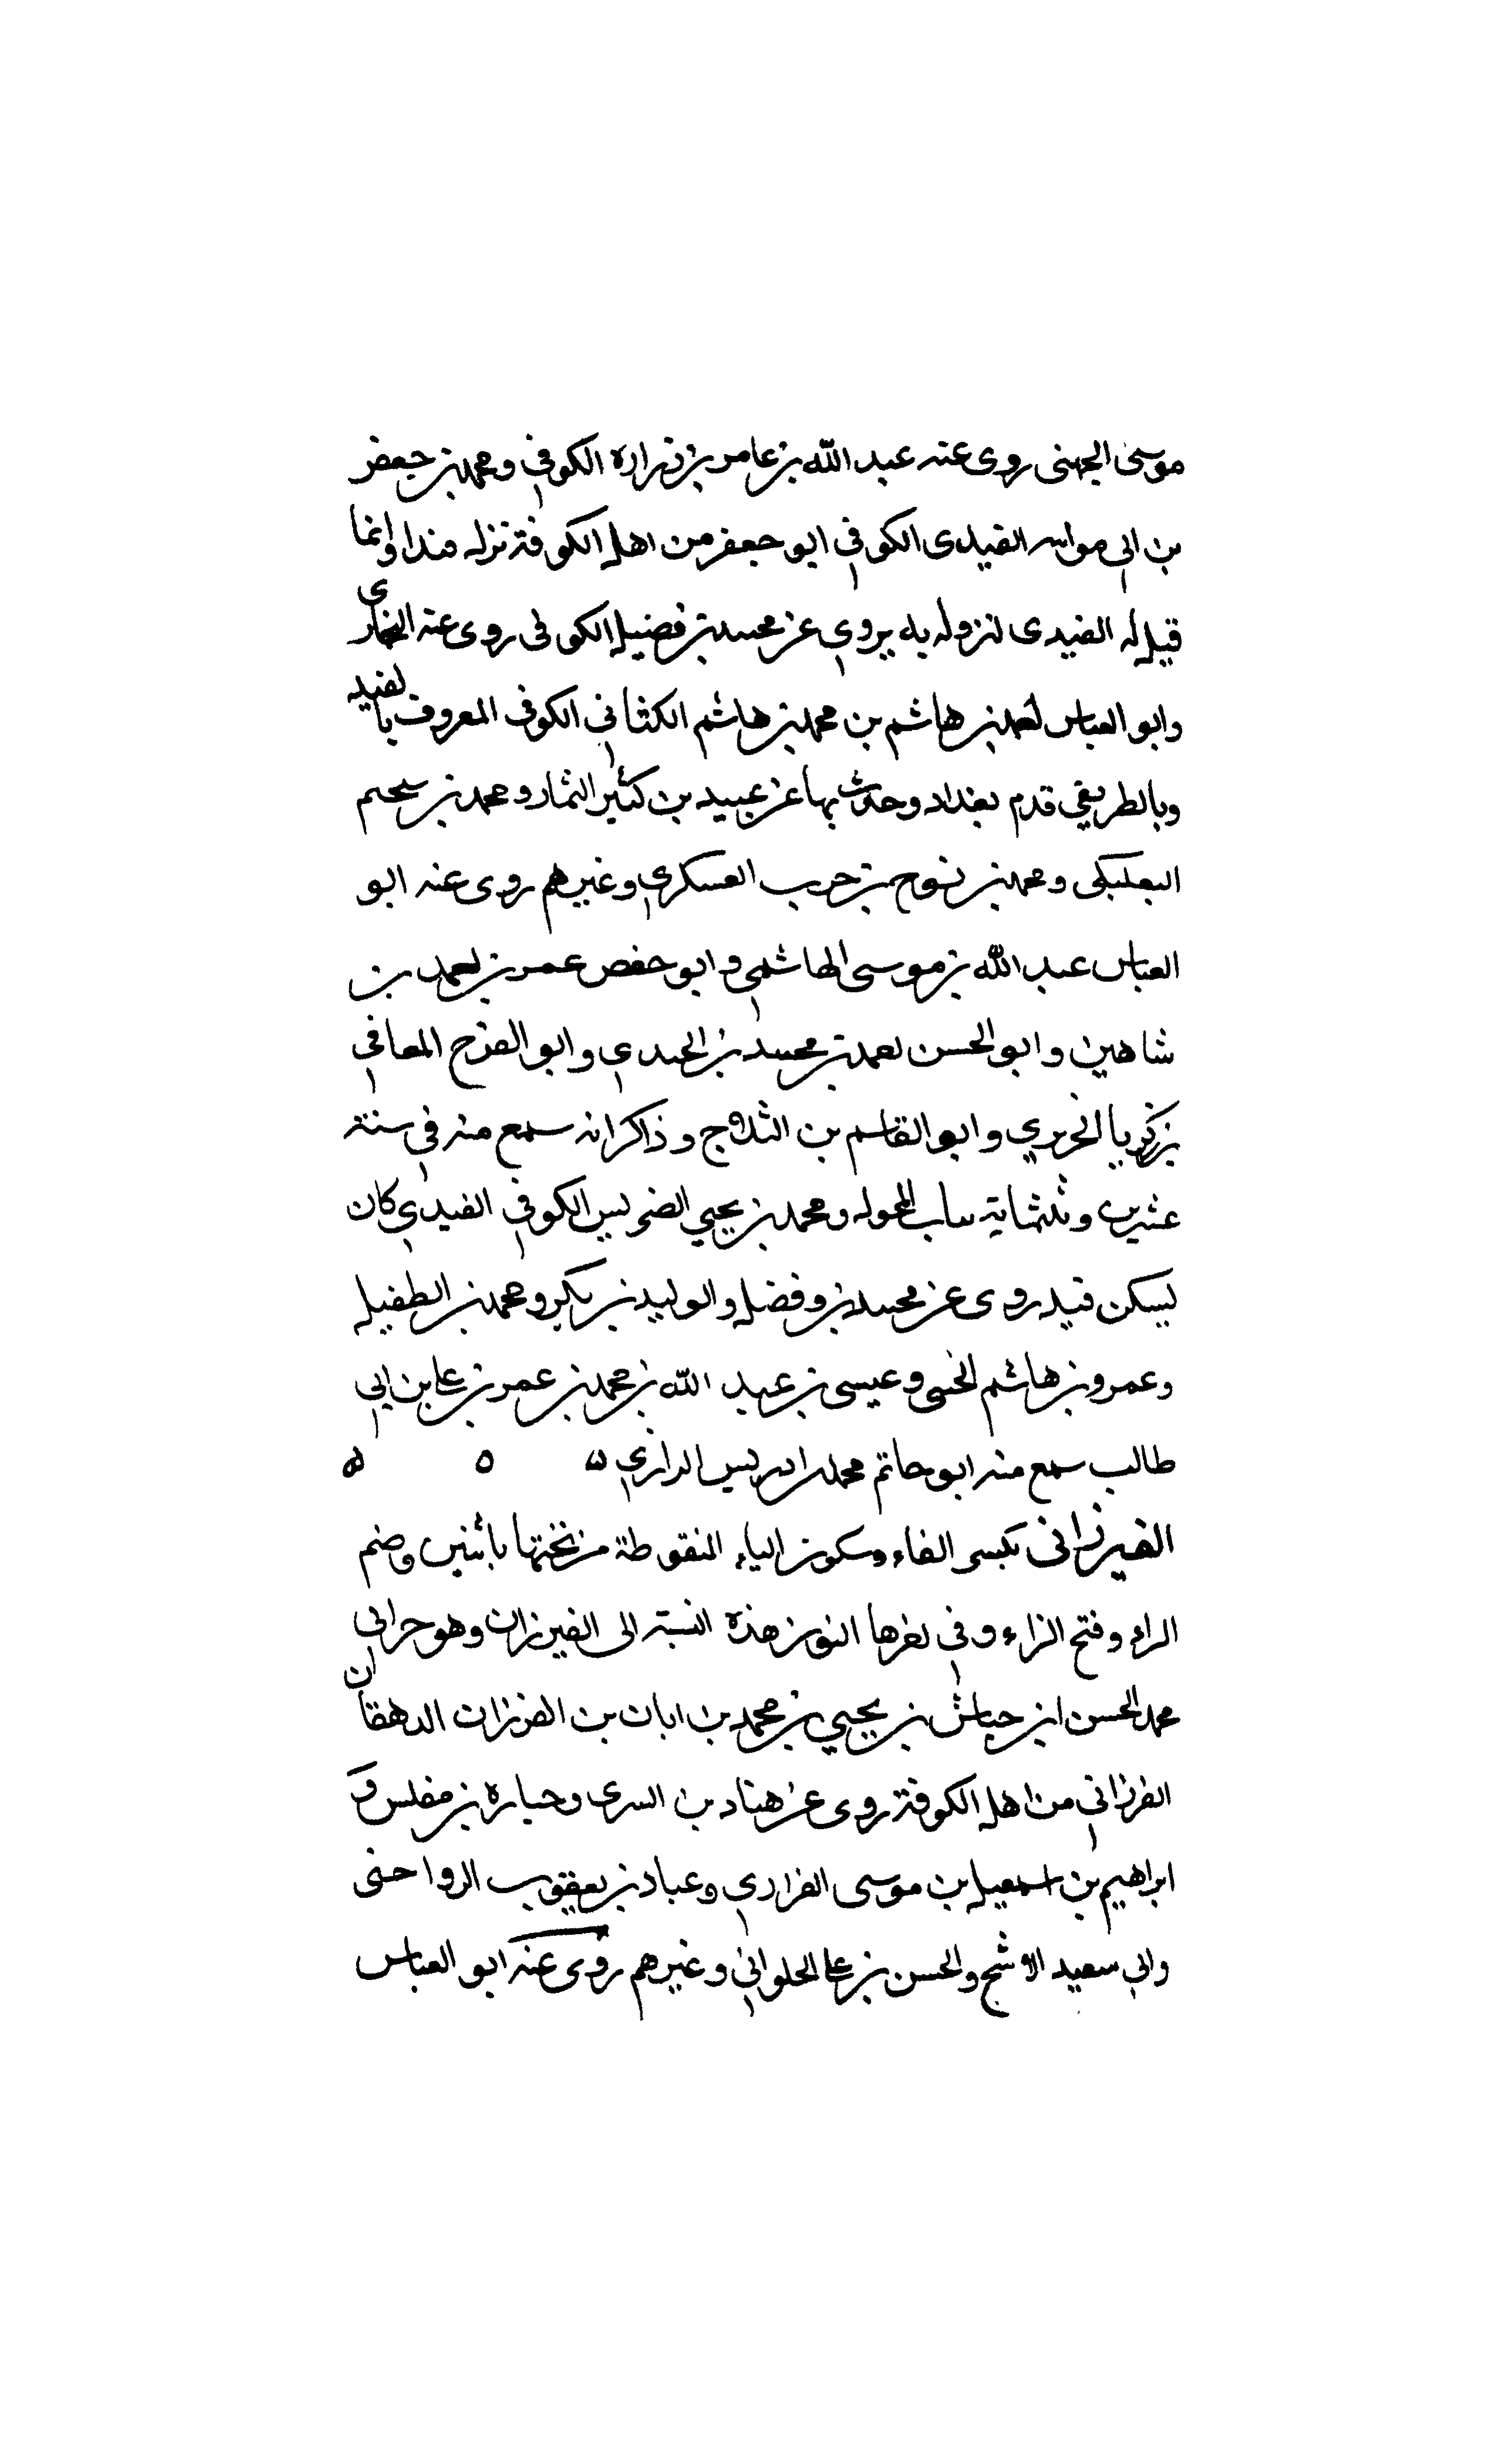 موسى الجهنى روى عنه عبد الله بن عامر بن زرارة الكوفي ومحمد بن جعفر
بن ابي مواسه الفيدى الكوفي ابو جعفر من اهل الكوفة نزل فيدا وانما
قيل له الفيدى لنزوله به يروي عن محمد بن فضيل الكوفى روى عنه البخارى
وابو العباس احمد بن هاشم بن محمد بن هاشم الكناني الكوفى المعروف بالفيد
وبالطريقي قدم بغداد وحدث بها عن عبيد بن كثير التمار ومحمد بن سحيم
البعلبكى ومحمد بن نوح بن حرب العسكري وغيرهم روى عنه ابو
العباس عبد الله بن موسى الهاشمي وابو حفص عمر بن احمد بن
شاهين وابو الحسن احمد بن محمد بن الجندي وابو الفرج المعافي
بن زكريا الجريري وابو القاسم بن الثلاج وذاكر انه سمع منه في سنة
عشرين وثلثماية بباب المحول ومحمد بن يحيي الضريس الكوفي الفيدي كان
يسكن فيد روى عن محمد بن فضل والوليد بن بكر ومحمد بن الطفيل
وعمرو بن هاشم الجنبى وعيسى بن عبد الله بن محمد بن عمر بن على بن ابي
طالب سمع منه ابو حاتم محمد بن ادريس الرازي ه ه ه
الفيرزانى بكسر الفاء وسكون الياء المنقوطة من تحتها باثنين وضم
الراء وفتح الزاء وفي اخرها النون هذه النسبة الى الفيرزان وهو جد ابي
محمد الحسن ابن حباش بن يحيي بن محمد بن ابان بن الفرزان الدهقان
الفرزاني من اهل الكوفة روى عن هناد بن السرى وجباره بن مغلس و
ابراهيم بن اسمعيل بن موسى الفزاري وعباد بن يعقوب الرواحنى
وابي سعيد الاشج والحسن بن على الحلواني وغيرهم روى عنه ابو العباس